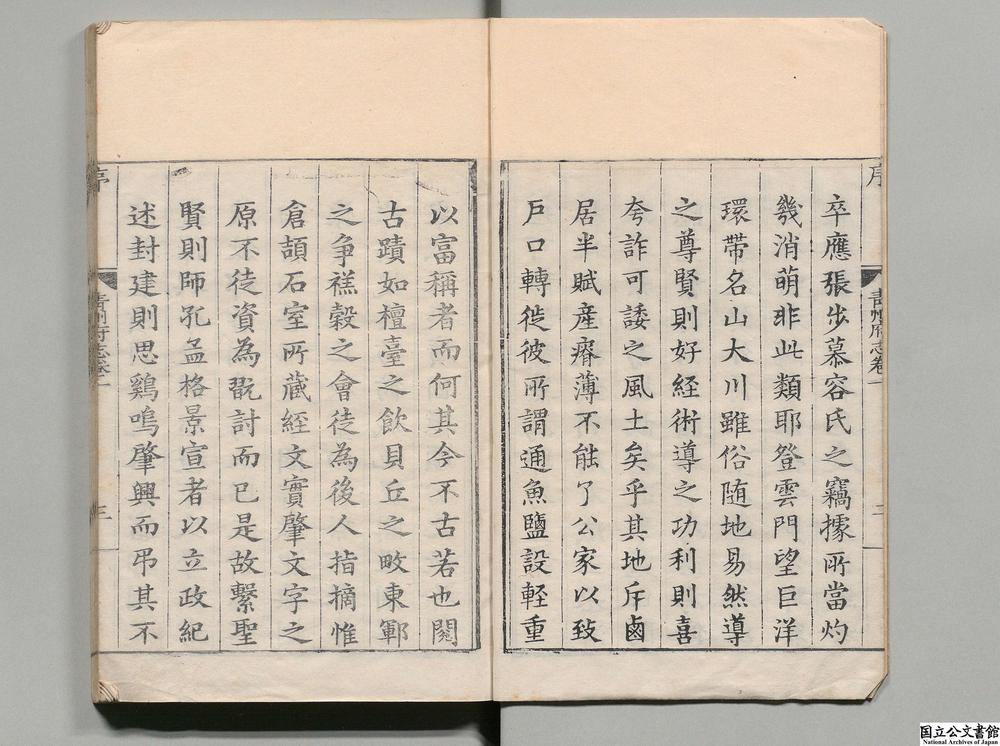 序
青州府志卷一
二
卒應張步慕容氏之竊據所當灼
幾消萌非此類耶登雲門望巨洋
環帶名山大川雖俗随地易然導
之尊賢則好經術導之功利則喜
夸詐可諉之風土矣乎其地斥鹵
居半賦産瘠薄不能了公家以致
戶口轉徙彼所謂通魚鹽設輕重
以富稱者而何其今不古若也閱
古蹟如檀臺之飲貝丘之畋東鄆
之争禚穀之會徒為後人指摘惟
倉頡石室所藏経文實肇文字之
原不徒資為翫討而已是故繫聖
賢則師孔孟格景宣者以立政紀
述封建則思鷄鳴肇興而吊其不
序
青州府志卷一
三
国立公文書館
National Archives of Japan